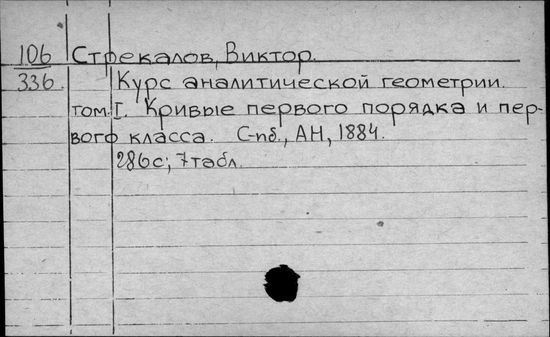 106 Стрекалов, Виктор.
336. Курс аналитической геометрии.
том. I. Кривые первого порядка и пер-
вого класса. С-пб., АН, 1884.
286с; 7табл.